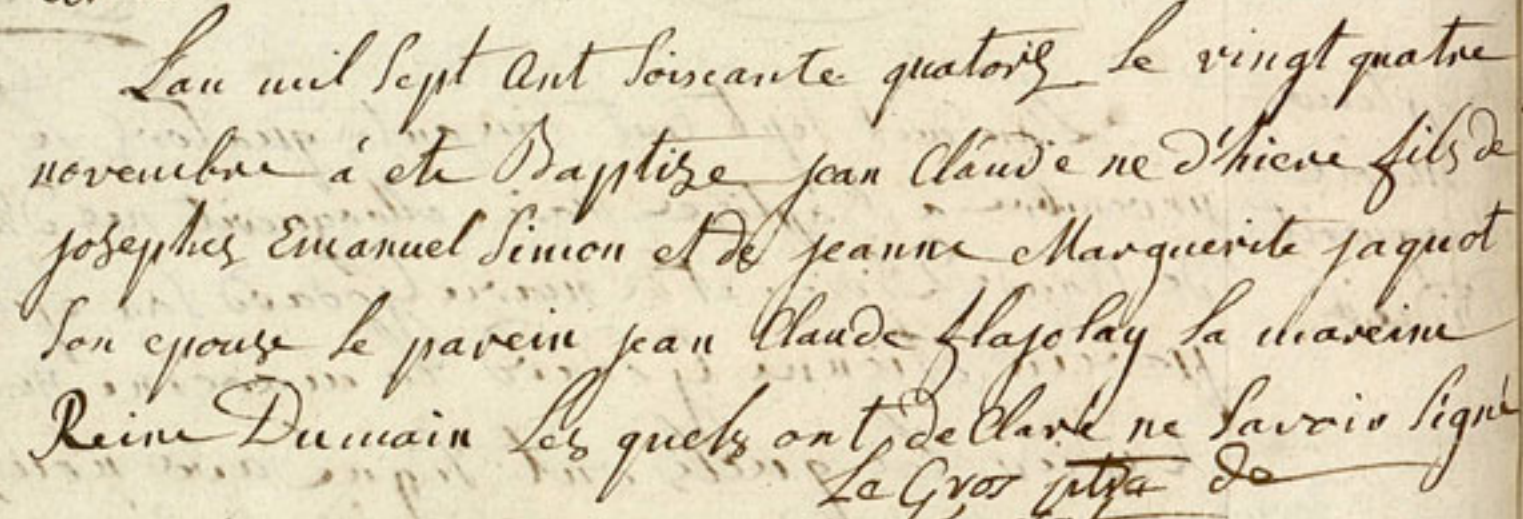 L'an mil sept cent soiscante quatorz le vingt quatre
novembre á ete Baptize jean Claude ne d'hiere fils de
josephez Emanuel Simon et de jeanne Marguerite jaquot
son epouze le parein jean Claude flajolay la mareine
Reine Dumain les quelz ont declaré ne savoir signé
Le Gros ptre de